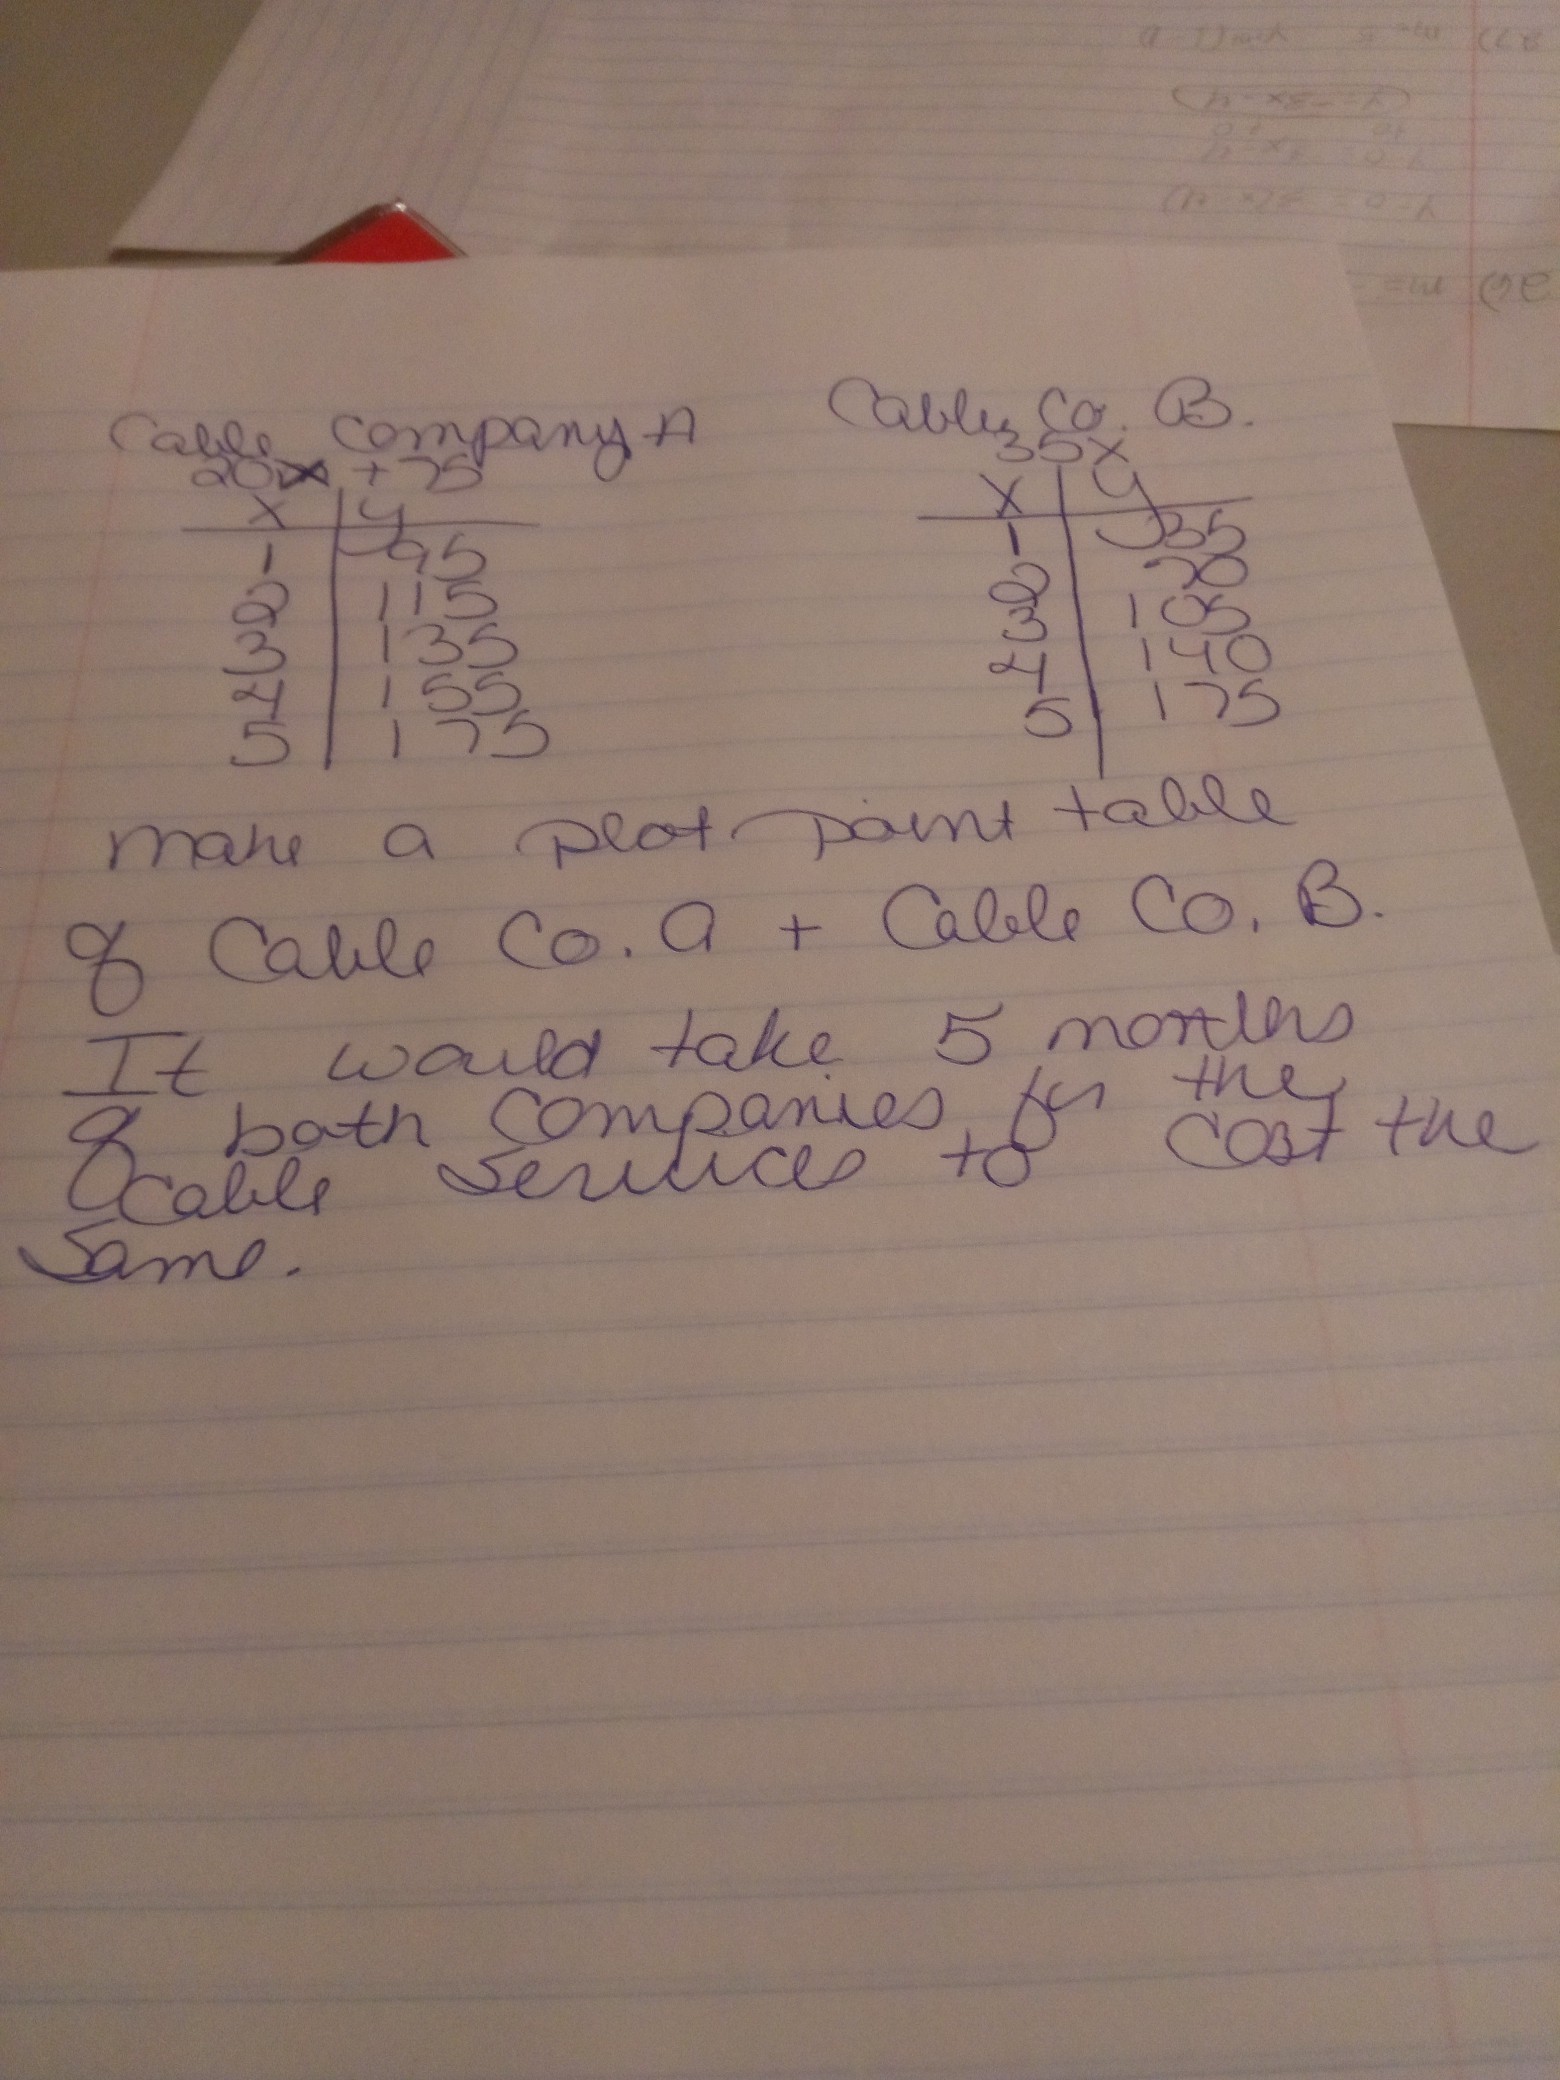 Cable Company A
20x + 75
x | y
1 | 95
2 | 115
3 | 135
4 | 155
5 | 175
Cable Co. B.
35x
x | y
1 | 35
2 | 70
3 | 105
4 | 140
5 | 175
make a plot point table
of Cable Co. A + Cable Co. B.
It would take 5 months
of both companies for the
cable services to cost the
same.